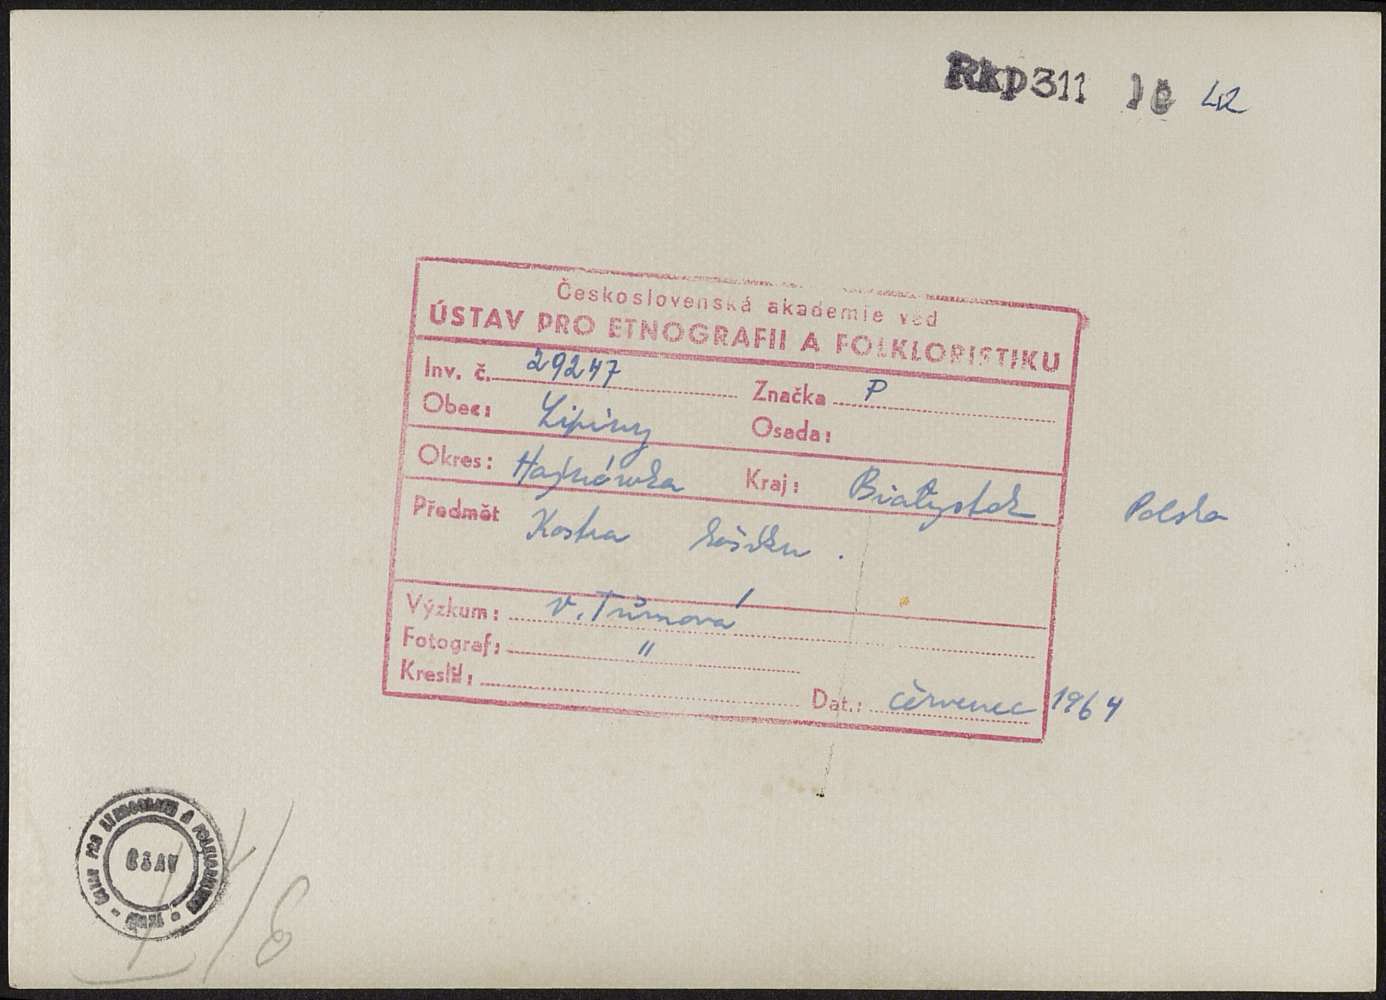 Rkp 311 42
Československá akademie věd
ÚSTAV PRO ETNOGRAFII A FOLKLORISTIKU
Inv. č. 29247 Značka P
Obec: Lipiny Osada:
Okres: Hajnówka Kraj: Białystok Polsko
Předmět Kostra košíku.
Výzkum: V. Tůmová
Fotograf: "
Kreslil:
Dat.: červenec 1964
ÚSTAV PRO ETNOGRAFII A FOLKLORISTIKU
ČSAV